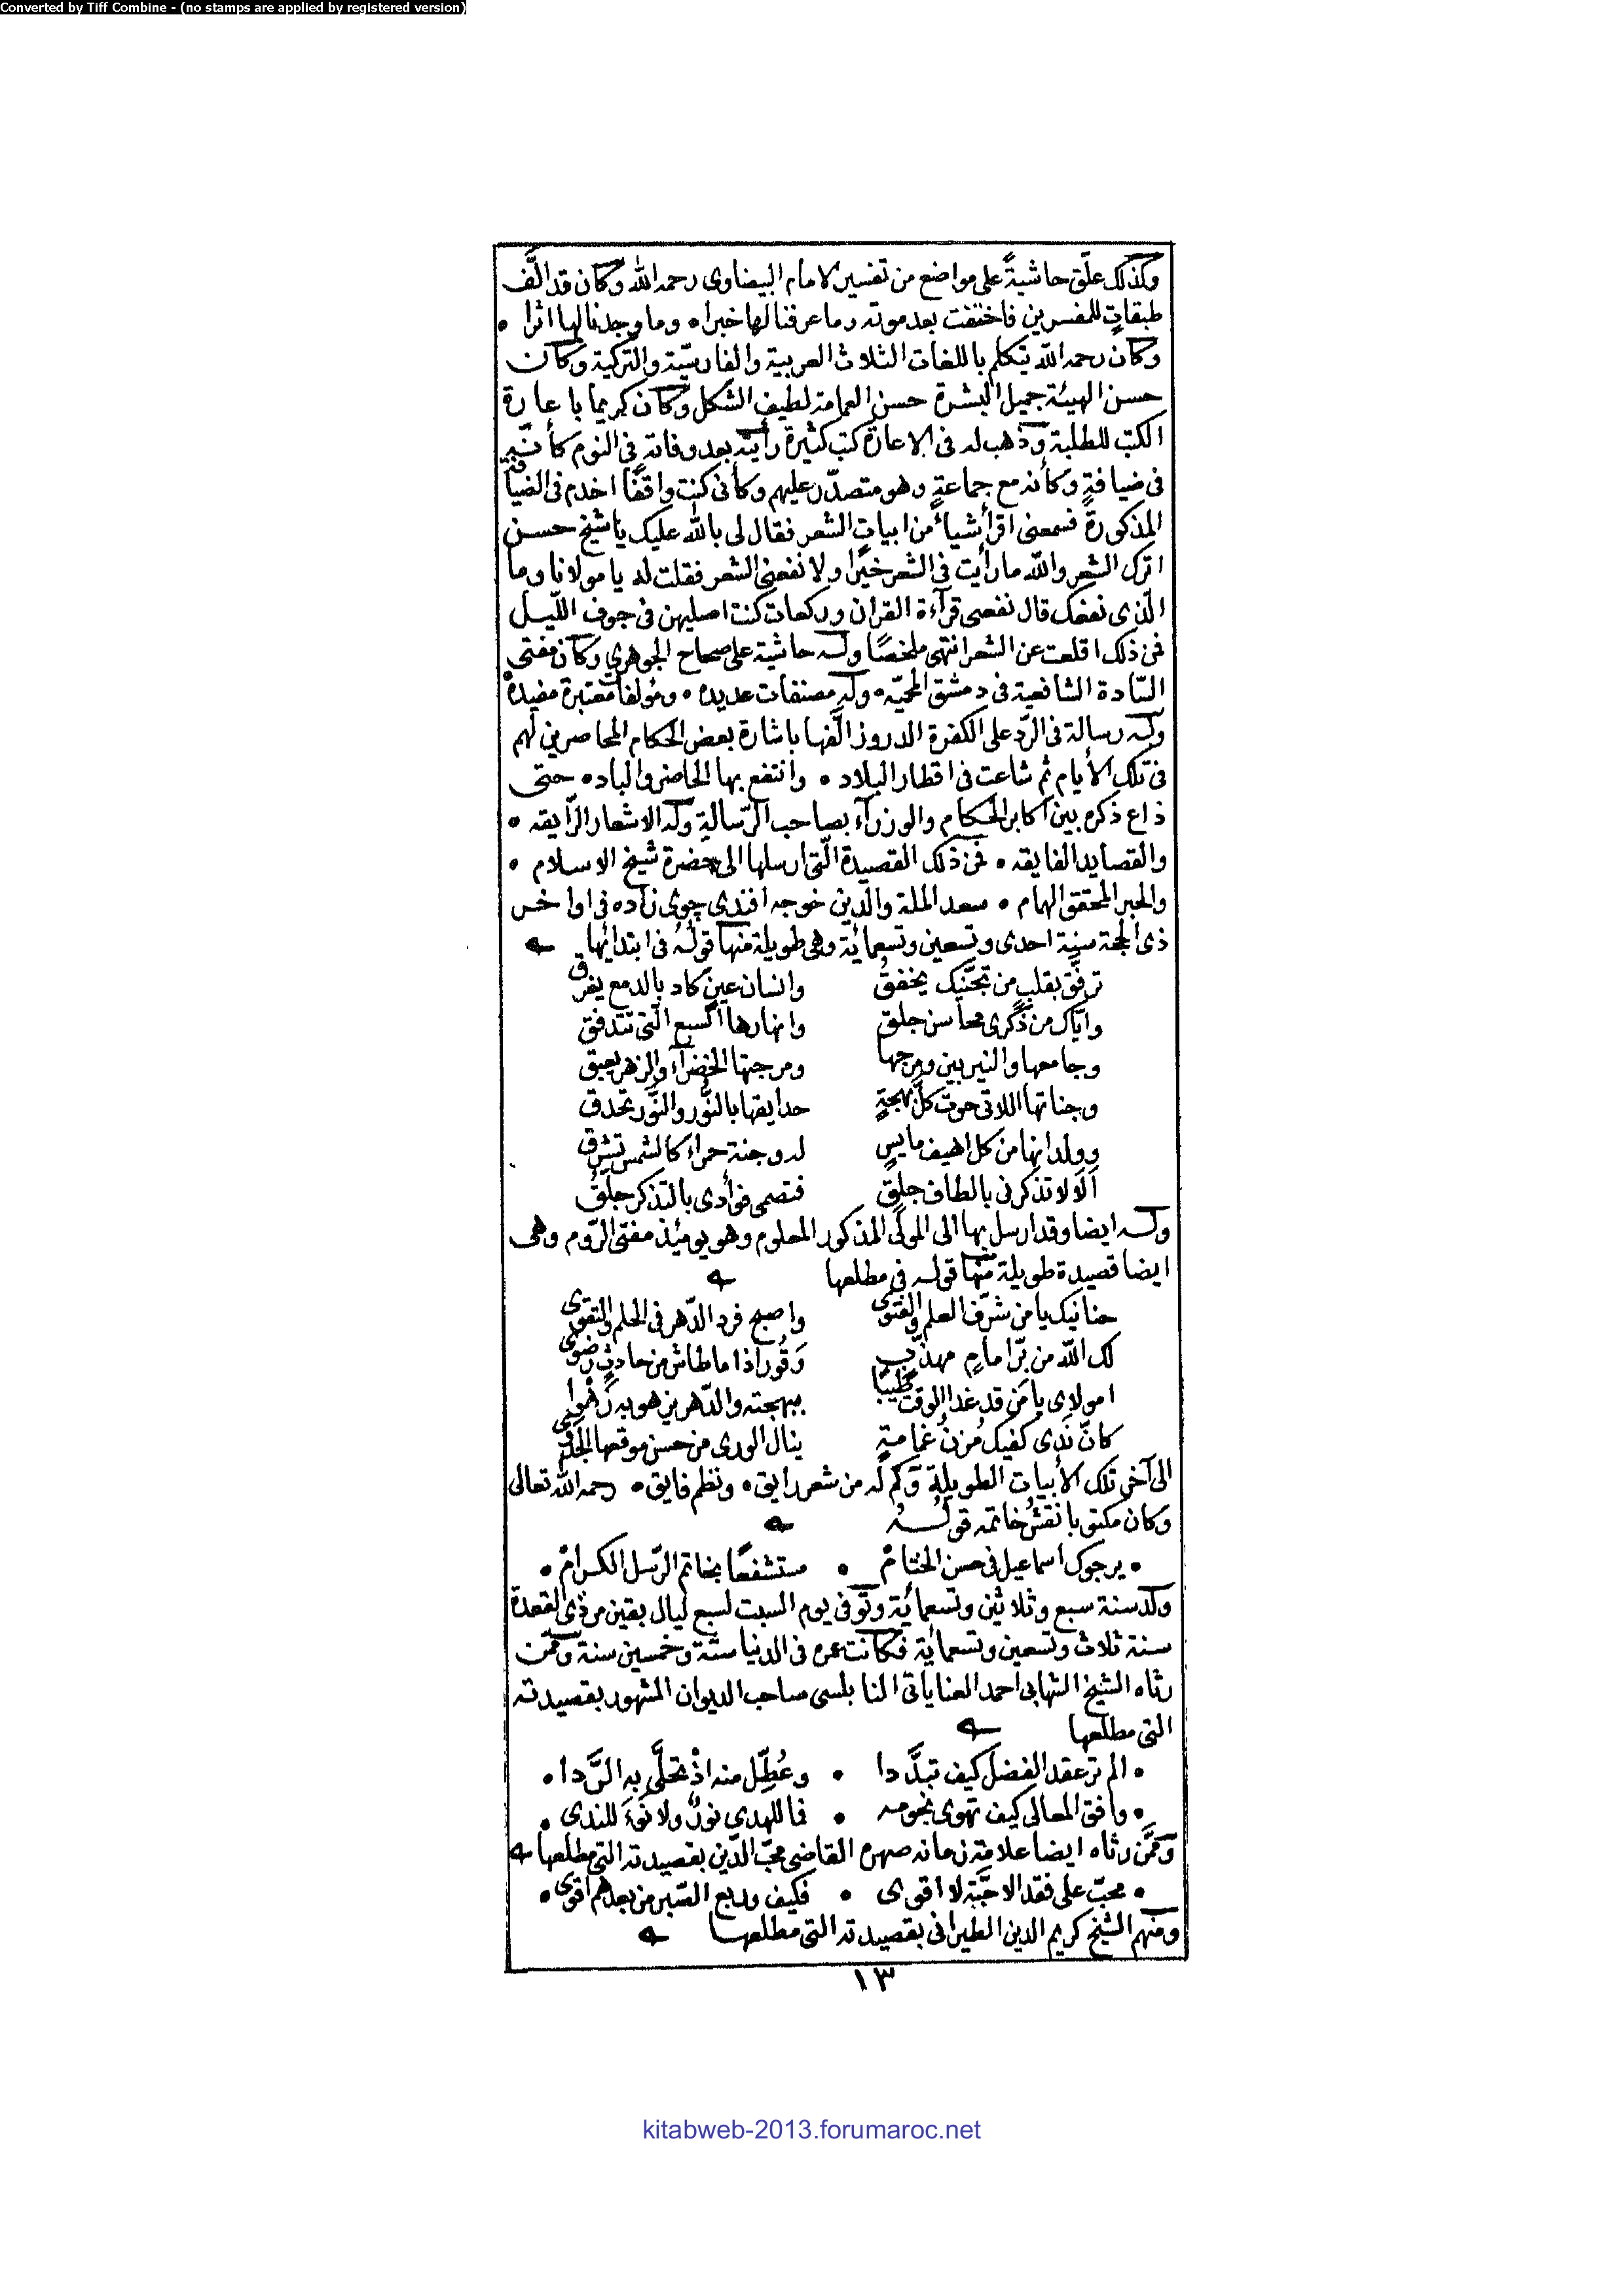 Converted by Tiff Combine - (no stamps are applied by registered version)
وكذلك علّق حاشيةً على مواضع من تفسير الامام البيضاوى رحمه الله وكان قد الَّف
طبقاتٍ للمفسرين فاختفت بعد موته وما عرفنا لها خبرا • وما وجدنا لها اثرا •
وكان رحمه الله يتكلم باللغات الثلاث العربية والفارسيّة والتركية وكان
حسن الهيئة جميل البشرة حسن العمامة لطيف الشكل وكان كريما باعارة
الكتب للطلبة وذهب له فى الاعارة كتب كثيرة رأيته بعد وفاته فى النوم كأننى
فى ضيافةٍ وكأنه مع جماعةٍ وهو متصدّر عليهم وكأنى كنت واقفًا اخدم فى الضيافة
المذكورة فسمعنى اقرأ شيأً من ابيات الشعر فقال لى بالله عليك يا شيخ حسن
اترك الشعر والله ما رأيت فى الشعر خيرًا ولا نفعنى الشعر فقلت له يا مولانا وما
الّذى نفعك قال نفعنى قرآءة القران وركعات كنت اصليهن فى جوف اللّيل
فمن ذلك اقلعت عن الشعر انتهى ملخصًا وله حاشية على صحاح الجوهري وكان مفتى
السّادة الشافعية فى دمشق المحميّه • وله مصنفات عديده • ومؤلفات معتبرة مفيدة
وله رسالة فى الرّد على الكفرة الدروز الّفها باشارة بعض الحكام المحاصرين لهم
فى تلك الأيام ثم شاعت فى اقطار البلاد • وانتفع بها الحاضر والباد • حتى
ذاع ذكره بين اكابر الحكام والوزرآء بصاحب الرّسالة وله الاشعار الرّايقه •
والقصايد الفايقه • فمن ذلك القصيدة الّتى ارسلها الى حضرة شيخ الاسلام •
والحبر المحقق الهمام • سعد الملة والدّين خوجه افندى جوى زاده فى اواخر
ذى الحجة سنة احدى وتسعين وتسعمائة وهى طويلة منها قولُه فى ابتدائها
ترفّق بقلبٍ من تجنّيك يخفقُ وانسان عينٍ كاد بالدمع يغرق
وايّاك من ذكرى محاسن جلق وانهارها السبع التى تتدفق
وجامعها والنيربين ومرجها ومرجتها الخضرآء والزهر يعبق
وجناتها اللاتى حوت كلّ بهجةٍ حدايقها بالنُّور والنَّور تحدق
وولدانها من كل اهيف مايسٍ له وجنة حمراء كالشمس تشرق
اَلَا لا تذكرنى بالطاف جلقٍ فتصمى فوأدى بالتذكر جلّقُ
وله ايضا وقد ارسل بها الى المولى المذكور المعلوم وهو يومئذ مفتى الرّوم وهى
ايضا قصيدة طويلة منها قوله فى مطلعها
حنانيك يا من شرّف العلم والفتوى واصبح فرد الدّهر فى الحلم والتقوى
لك الله من برّ امامٍ مهذّبٍ وَقُور اذا ما طاش من حادثٍ رضوى
امولاى يا مَن قد غدا الوقت طيبًا ببهجته والدّهر
كانّ نَدى كفيك مُزنُ غمامةٍ ينال الورى من حسن موقعها الجدوى
الى آخر تلك الأبيات الطويلة وكم له من شعر رايق • ونظم فايق • رحمه الله تعالى
وكان مكتوبا نقش خاتمه قوله
• يرجوك اسماعيل فى حسن الختامْ • مستشفعًا بخاتم الرّسل الكرامْ •
ولد سنة سبع وثلاثين وتسعمائية وتوفى يوم السبت لسبع ليال بقين من ذى القعدة
سنة ثلاث وتسعين وتسعمائة فكانت عمره فى الدنيا ستّة وخمسين سنة وممّن
رثاه الشيخ الشهابى احمد العناياتى النابلسى صاحب الديوان المشهور بقصيدته
التى مطلعها
• الم تر عقد الفضل كيف تبدَّدا • وعُطِّل منه اذْ تحلَّى به الرَّدا •
• وافق المعالى كيف تهوى نجومه • فما للهدى نورٌ ولا نَوْءَ للندى •
وممَّن رثاه ايضا علامة زمانه صهره القاضى محبّ الدّين بقصيدته التى مطلعها
• محبّ على فقد الاحبَّة لا اقوى • فكيف وربع الصّبر من بعدهم اقوى •
ومنهم الشيخ كريم الدين الطيرانى بقصيدته التى مطلعها
١٣
kitabweb-2013.forumaroc.net